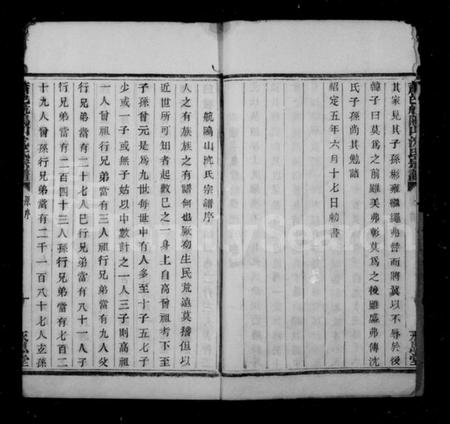 其家見其子孫彬雍繩繩弗替而將冀以不辱於後
韓子曰莫爲之前雖美弗彰莫爲之後雖盛弗傳沈
氏子孫尚其勉諸
紹定五年六月十七日勅書
航隖山沈氏宗譜序
人之有族族之有譜何也厥初生民荒遠莫稽但以
近世所可知者起數己之一身上自高曾祖考下至
子孫曾元是爲九世每世中有人多至十子五七子
少或一子或無子姑以中數計之一人三子則高祖
一人曾祖行兄弟當有三人祖行兄弟當有九人父
行兄弟當有二十七人己行兄弟當有八十一人子
行兄弟當有二百四十三人孫行兄弟當有七百二
十九人曾孫行兄弟當有二千一百八十七人玄孫